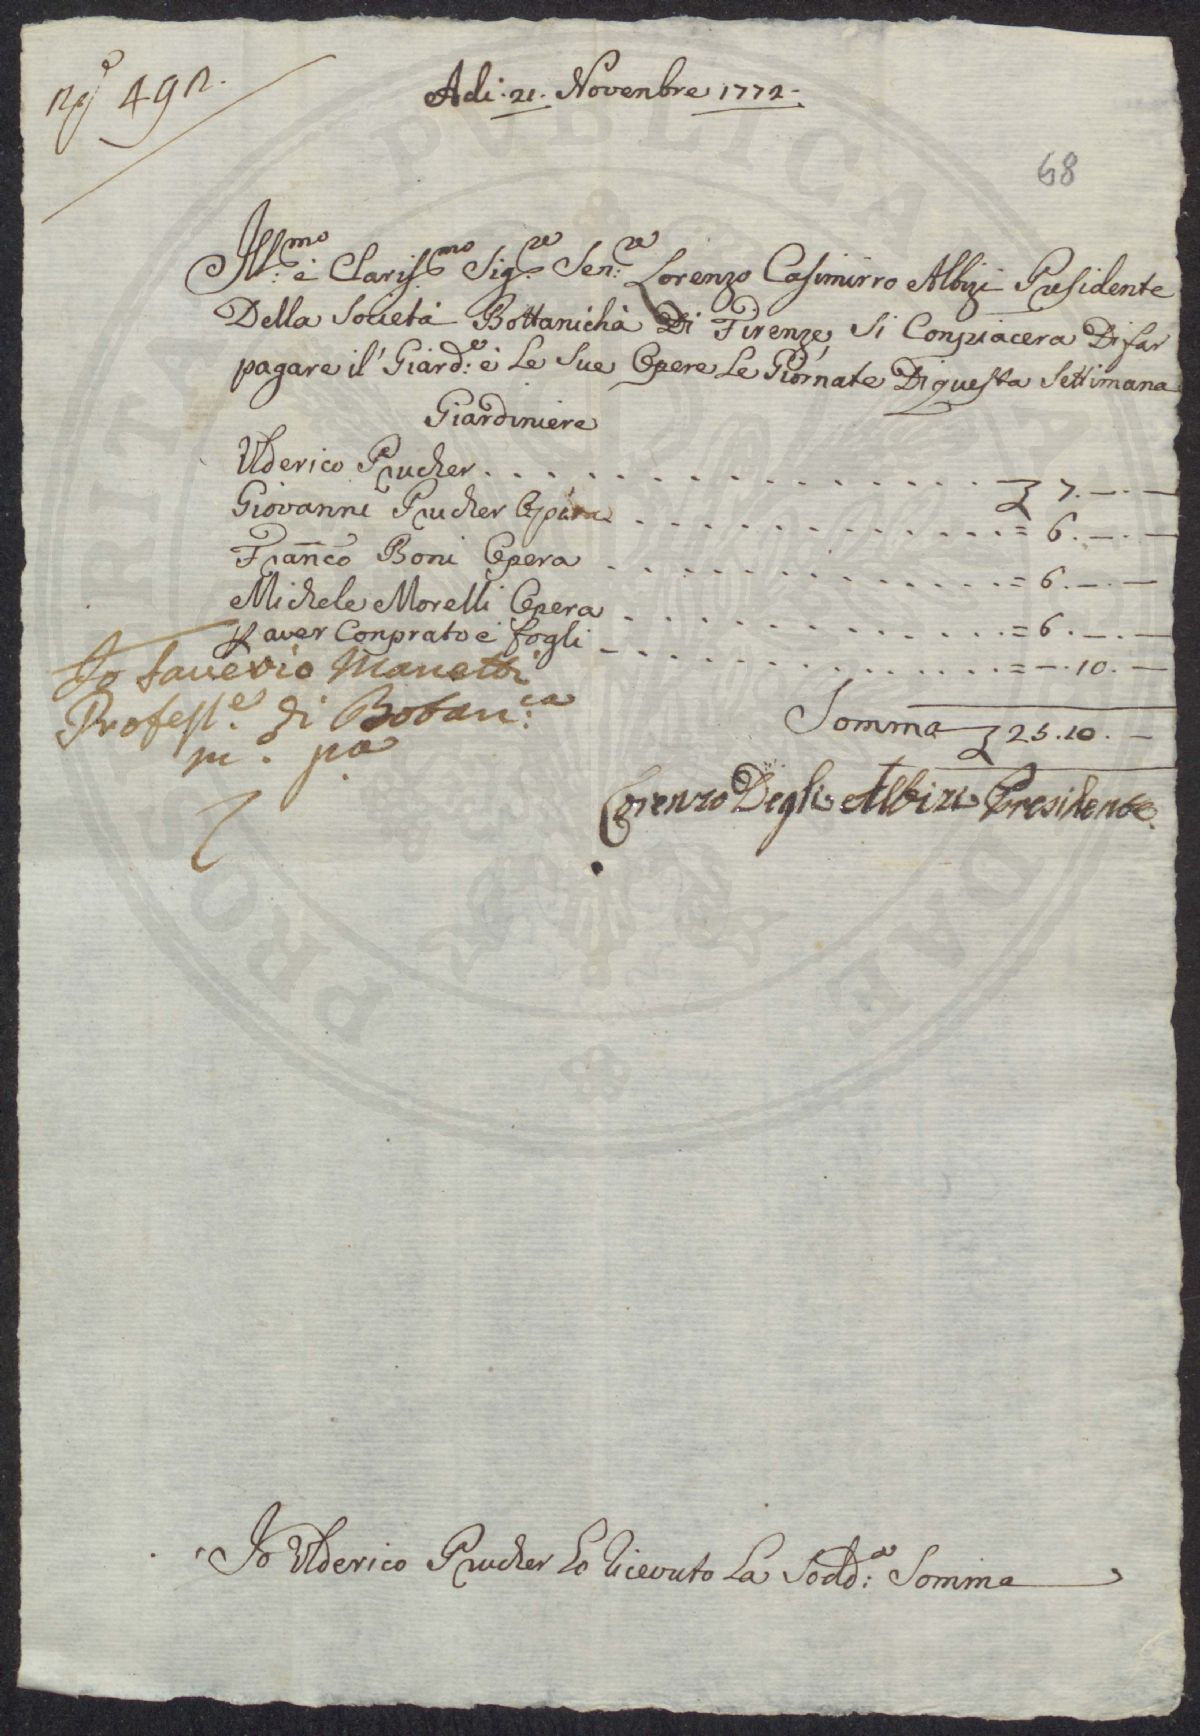 Adi 21. Novenbre 1772.
68
Ill:mo e Clariss:mo Sig:re Sen:re Lorenzo Casimirro Albizi Presidente
Della Societa Bottanicha Di Firenze Si Conpiacera Di far
pagare il Giard:e e Le Sue Opere Le Giornate Di questa Settimana
Giardiniere
Ulderico Prucher . . . . . . . 7. — . —
Giovanni Prucher Opera . . . . . . . = 6. — . —
Franco Boni Opera . . . . . . . = 6. — . —
Michele Morelli Opera . . . . . . . = 6. — . —
aver Conprato e fogli . . . . . . . = — . 10. —
Io Saverio Manetti
Profess:e di Botan:ca
m. pa
Somma 25. 10. —
Lorenzo Degli Albizi Presidente
Io Ulderico Prucher ho ricevuto La Sodd:a Somma
PVBLICA